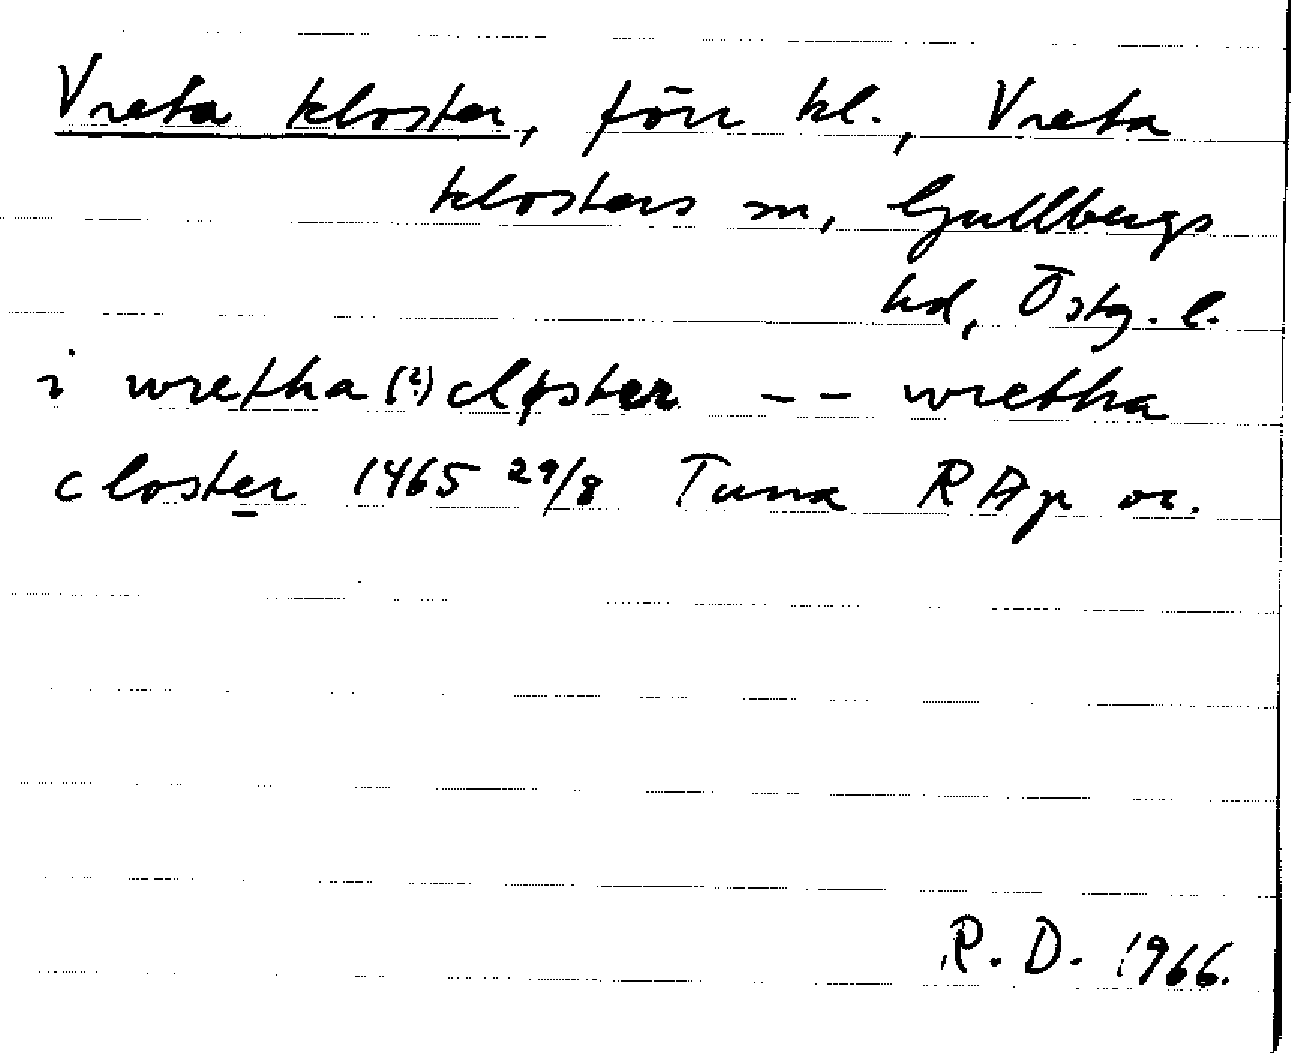 Vreta kloster, förr kl., Vreta
klosters sn, Gullbergs
hd, Östg. l.
i wretha (?) cløster -- wretha
closter 1465 29/8 Tuna RAp or.
R. D. 1966.